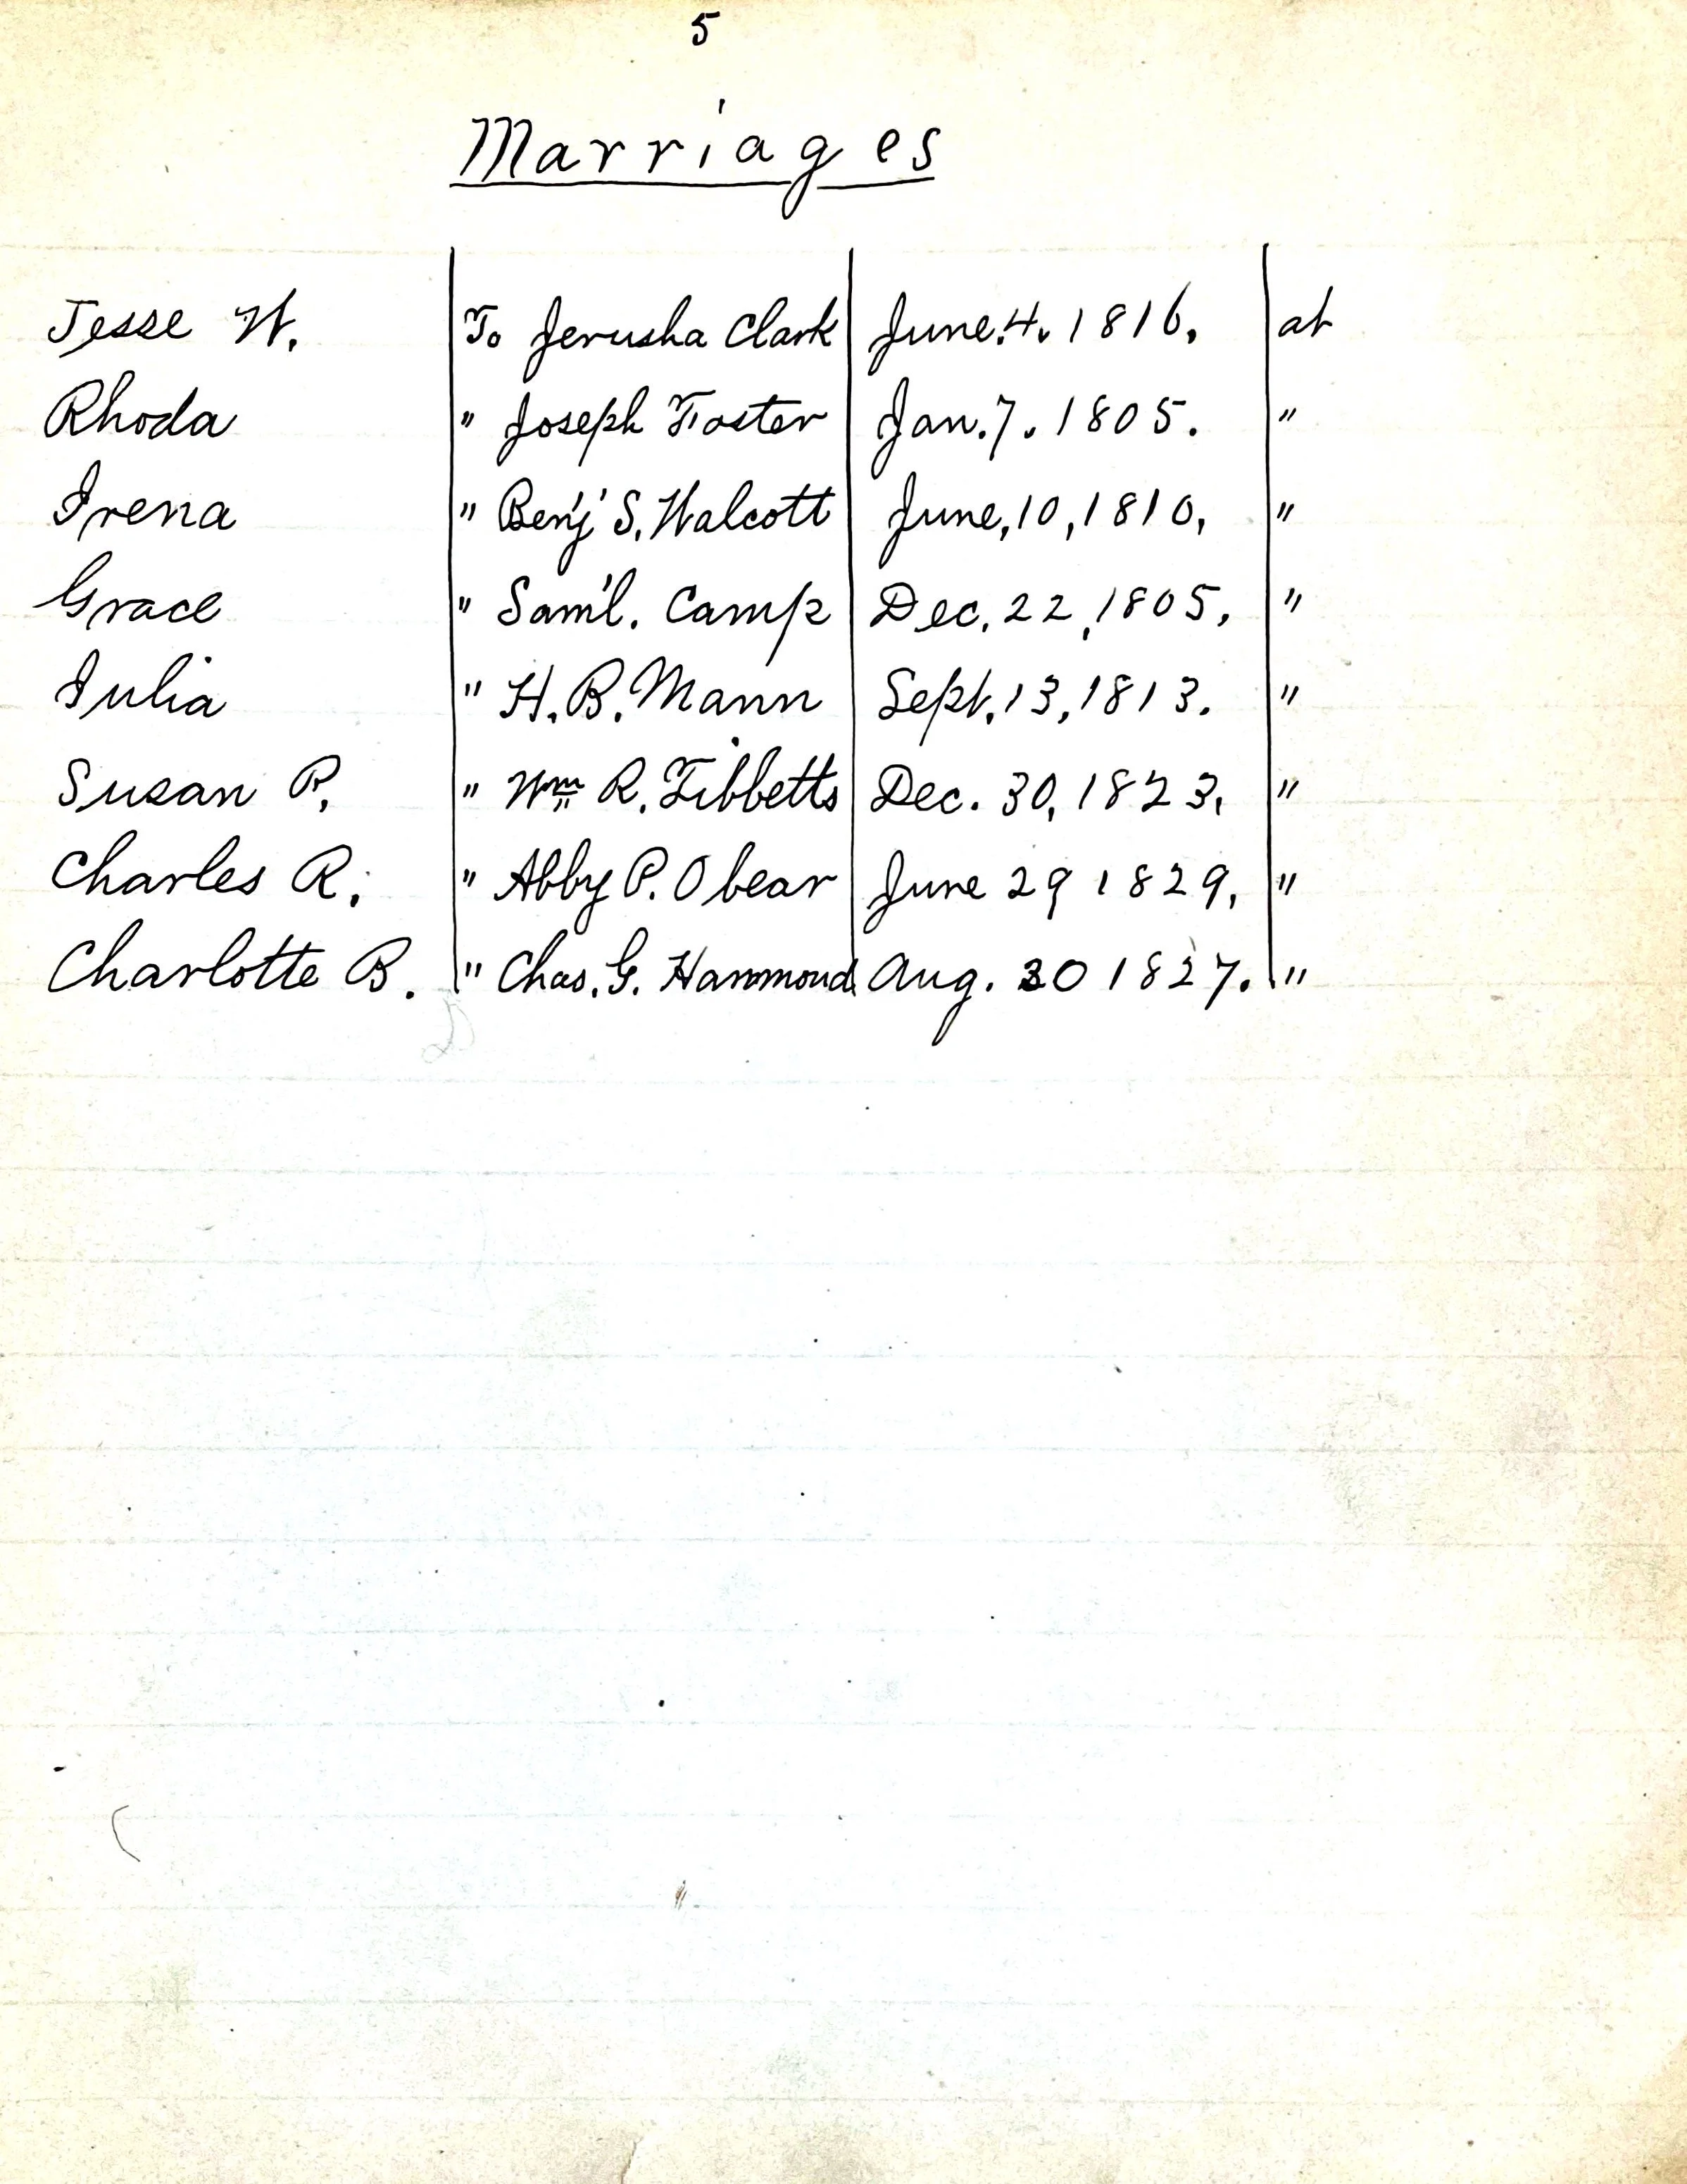 5
Marriages
Jesse W. To Jerusha Clark June. 4. 1816. at
Rhoda " Joseph Foster Jan. 7. 1805. "
Irena " Benj' S. Walcott June, 10, 1810, "
Grace " Sam'l. Camp Dec. 22, 1805, "
Julia " H. B. Mann Sept. 13, 1813. "
Susan P. " Wm R. Tibbetts Dec. 30, 1823, "
Charles R. " Abby P. Obear June 29 1829, "
Charlotte B. " Chas. G. Hammond Aug. 30 1827. "